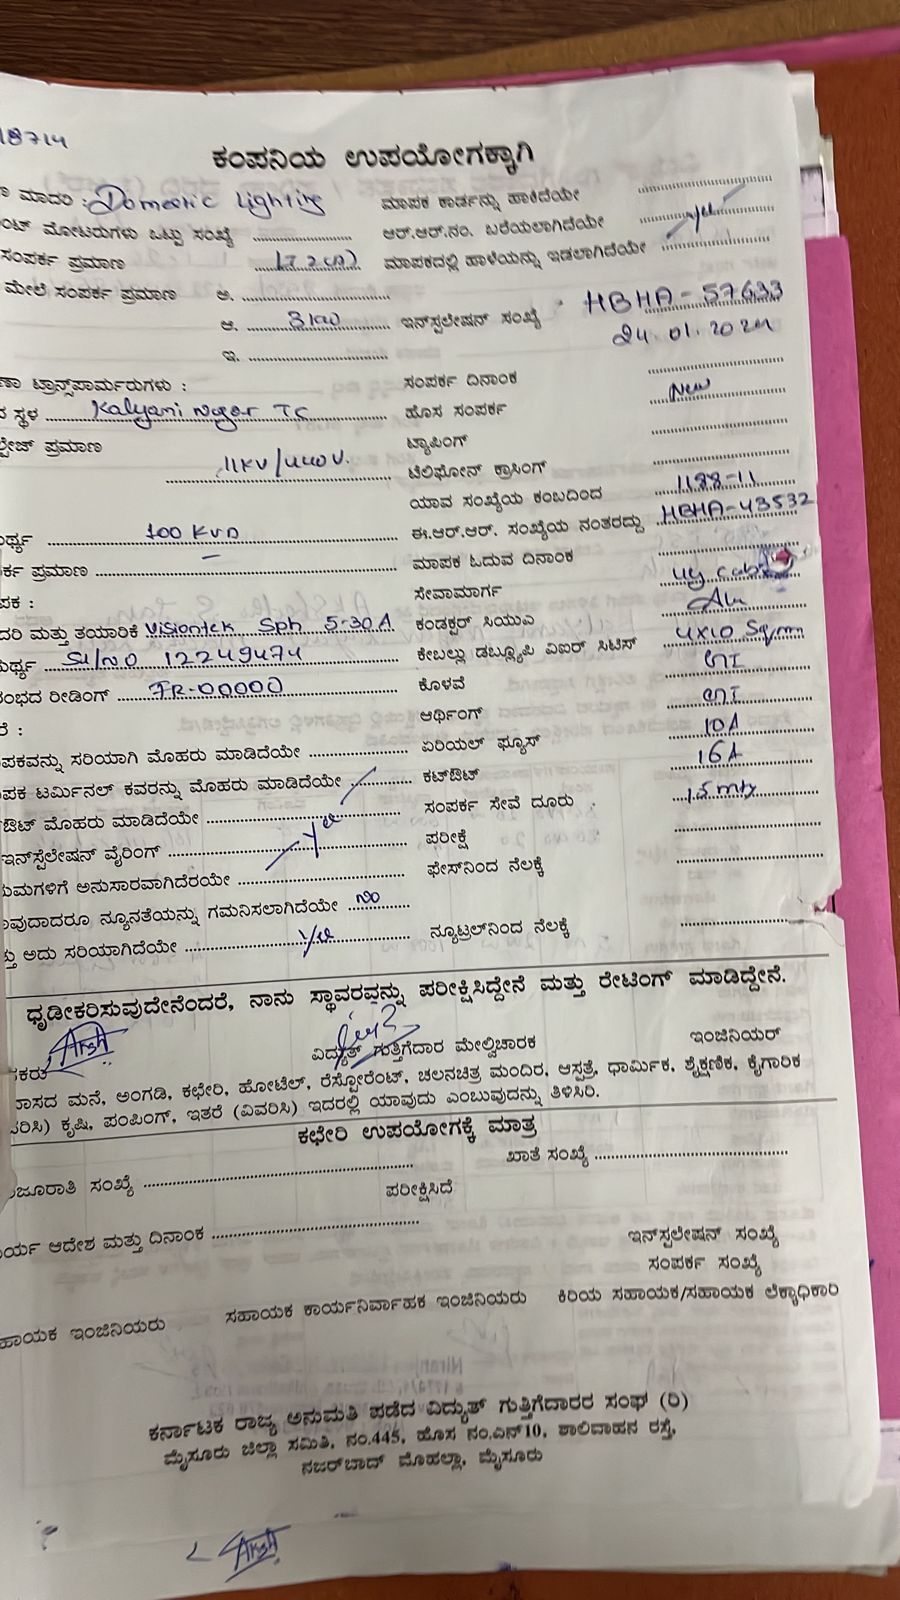 18714
ಕಂಪನಿಯ ಉಪಯೋಗಕ್ಕಾಗಿ
ಮಾದರಿ : Domestic Lighting ಮಾಪಕ ಕಾರ್ಡನ್ನು ಹಾಕಿದೆಯೇ
ಮೋಟರುಗಳು ಒಟ್ಟು ಸಂಖ್ಯೆ ಆರ್.ಆರ್.ನಂ. ಬರೆಯಲಾಗಿದೆಯೇ yes
ಸಂಪರ್ಕ ಪ್ರಮಾಣ ಮಾಪಕದಲ್ಲಿ ಹಾಳೆಯನ್ನು ಇಡಲಾಗಿದೆಯೇ
ಮೇಲೆ ಸಂಪರ್ಕ ಪ್ರಮಾಣ ಅ.
ಆ. 3kw ಇನ್‌ಸ್ಟಲೇಷನ್ ಸಂಖ್ಯೆ HBHA-57633
24.01.2024
ಇ.
ಟ್ರಾನ್ಸ್‌ಪಾರ್ಮರುಗಳು : ಸಂಪರ್ಕ ದಿನಾಂಕ
ಸ್ಥಳ Kalyani Nagar TC ಹೊಸ ಸಂಪರ್ಕ New
ಪ್ರಮಾಣ 11KV/440V. ಟ್ಯಾಪಿಂಗ್
ಟೆಲಿಫೋನ್ ಕ್ರಾಸಿಂಗ್
ಯಾವ ಸಂಖ್ಯೆಯ ಕಂಬದಿಂದ 1188-11
100 KVA ಈ.ಆರ್.ಆರ್. ಸಂಖ್ಯೆಯ ನಂತರದ್ದು HBHA-43532
ಪ್ರಮಾಣ ಮಾಪಕ ಓದುವ ದಿನಾಂಕ
ಸೇವಾಮಾರ್ಗ ug cable
ಮತ್ತು ತಯಾರಿಕೆ Visiontek Sph 5-30A ಕಂಡಕ್ಟರ್ ಸಿಯುವಿ Alu
Sl/NO 12249474 ಕೇಬಲ್ಲು ಡಬ್ಲ್ಯೂಪಿ ವಿಐರ್ ಸಿಟಿಸ್ 4x10 Sq.mm
ರೀಡಿಂಗ್ FR-00000 ಕೊಳವೆ GI
ಆರ್ಥಿಂಗ್ GI
ಸರಿಯಾಗಿ ಮೊಹರು ಮಾಡಿದೆಯೇ ಏರಿಯಲ್ ಫ್ಯೂಸ್ 10A
ಟರ್ಮಿನಲ್ ಕವರನ್ನು ಮೊಹರು ಮಾಡಿದೆಯೇ ಕಟ್‌ಔಟ್ 16A
ಮೊಹರು ಮಾಡಿದೆಯೇ ಸಂಪರ್ಕ ಸೇವೆ ದೂರು 15 mty
ಇನ್‌ಸ್ಟೆಲೇಷನ್ ವೈರಿಂಗ್ yes ಪರೀಕ್ಷೆ
ಅನುಸಾರವಾಗಿದೆರಯೇ ಫೇಸ್‌ನಿಂದ ನೆಲಕ್ಕೆ
ನ್ಯೂನತೆಯನ್ನು ಗಮನಿಸಲಾಗಿದೆಯೇ No
ಅದು ಸರಿಯಾಗಿದೆಯೇ yes ನ್ಯೂಟ್ರಲ್‌ನಿಂದ ನೆಲಕ್ಕೆ
ಧೃಡೀಕರಿಸುವುದೇನೆಂದರೆ, ನಾನು ಸ್ಥಾವರವನ್ನು ಪರೀಕ್ಷಿಸಿದ್ದೇನೆ ಮತ್ತು ರೇಟಿಂಗ್ ಮಾಡಿದ್ದೇನೆ.
ವಿದ್ಯುತ್ ಗುತ್ತಿಗೆದಾರ ಮೇಲ್ವಿಚಾರಕ ಇಂಜಿನಿಯರ್
ಮನೆ, ಅಂಗಡಿ, ಕಛೇರಿ, ಹೋಟೆಲ್, ರೆಸ್ಟೋರೆಂಟ್, ಚಲನಚಿತ್ರ ಮಂದಿರ, ಆಸ್ಪತ್ರೆ, ಧಾರ್ಮಿಕ, ಶೈಕ್ಷಣಿಕ, ಕೈಗಾರಿಕ
ಕೃಷಿ, ಪಂಪಿಂಗ್, ಇತರೆ (ವಿವರಿಸಿ) ಇದರಲ್ಲಿ ಯಾವುದು ಎಂಬುವುದನ್ನು ತಿಳಿಸಿರಿ.
ಕಛೇರಿ ಉಪಯೋಗಕ್ಕೆ ಮಾತ್ರ
ಸಂಖ್ಯೆ ಖಾತೆ ಸಂಖ್ಯೆ
ಪರೀಕ್ಷಿಸಿದೆ
ಆದೇಶ ಮತ್ತು ದಿನಾಂಕ
ಇನ್‌ಸ್ಟಲೇಷನ್ ಸಂಖ್ಯೆ
ಸಂಪರ್ಕ ಸಂಖ್ಯೆ
ಇಂಜಿನಿಯರು ಸಹಾಯಕ ಕಾರ್ಯನಿರ್ವಾಹಕ ಇಂಜಿನಿಯರು ಕಿರಿಯ ಸಹಾಯಕ/ಸಹಾಯಕ ಲೆಕ್ಕಾಧಿಕಾರಿ
ಕರ್ನಾಟಕ ರಾಜ್ಯ ಅನುಮತಿ ಪಡೆದ ವಿದ್ಯುತ್ ಗುತ್ತಿಗೆದಾರರ ಸಂಘ (ರಿ)
ಮೈಸೂರು ಜಿಲ್ಲಾ ಸಮಿತಿ, ನಂ.445, ಹೊಸ ನಂ.ಎನ್10, ಶಾಲಿವಾಹನ ರಸ್ತೆ,
ನಜರ್‌ಬಾದ್ ಮೊಹಲ್ಲಾ, ಮೈಸೂರು